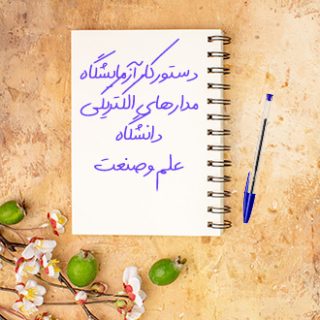 دستورکار آزمایشگاه
مدارهای الکتریکی
دانشگاه
علم و صنعت